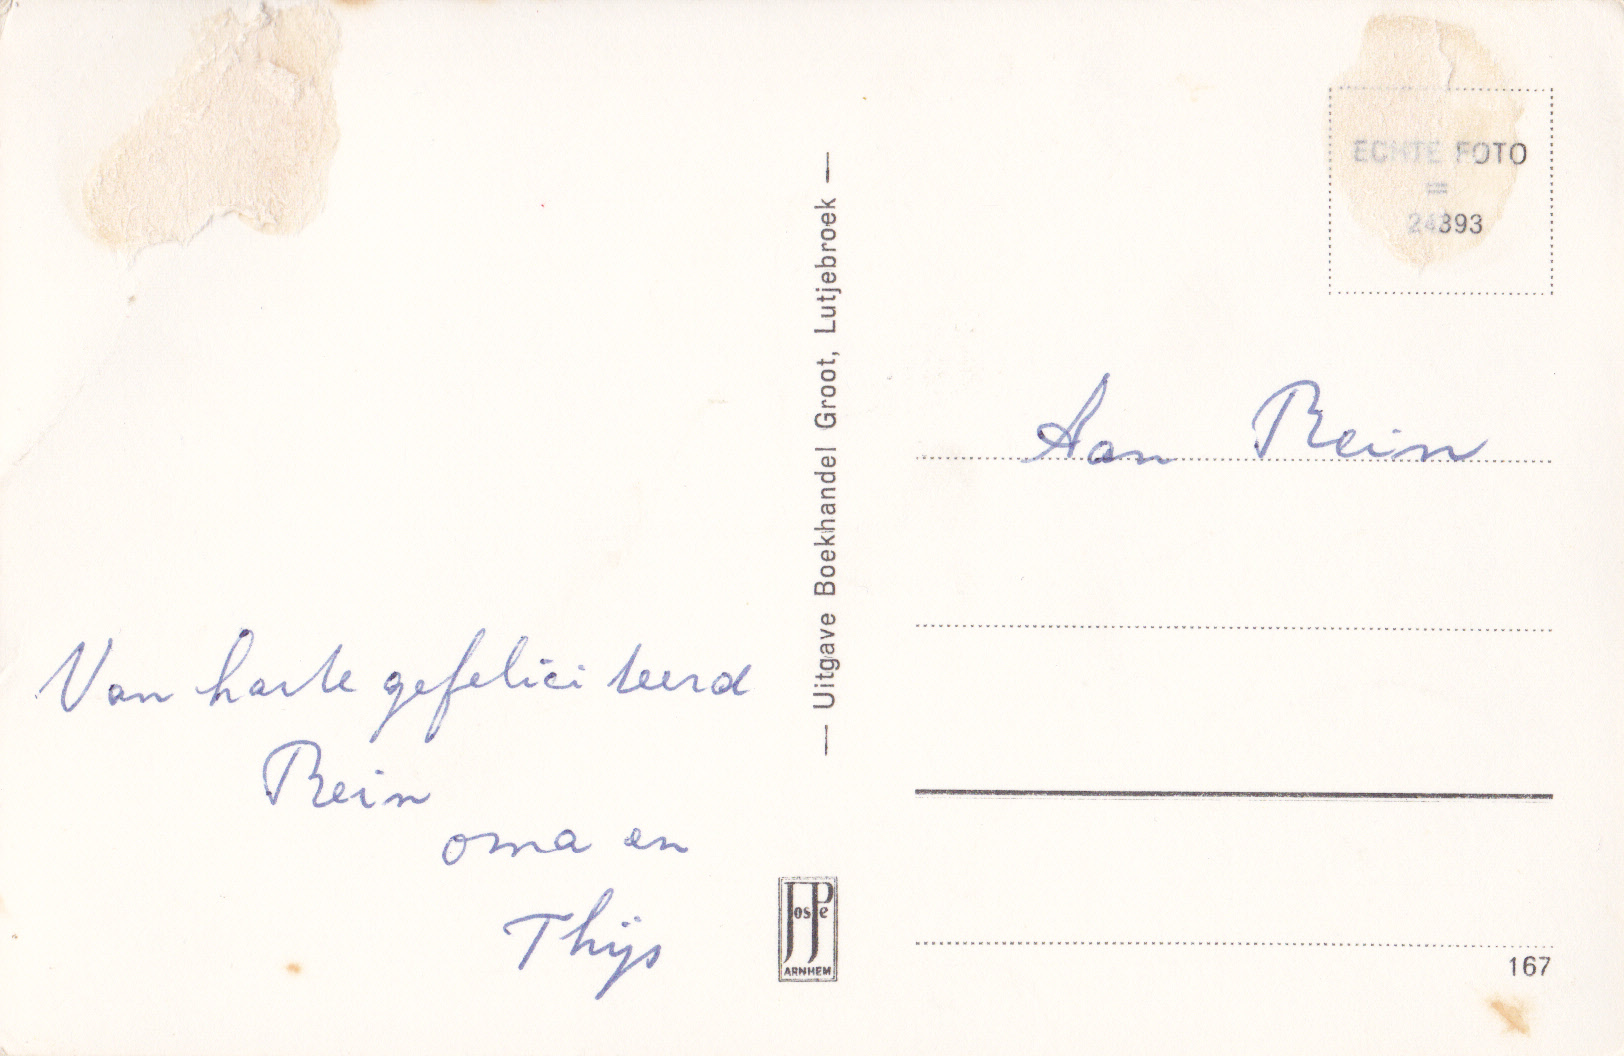 Van harte gefeliciteerd
Rein
oma en
Thijs
— Uitgave Boekhandel Groot, Lutjebroek —
JosPe
ARNHEM
ECHTE FOTO
=
24393
Aan Rein
167